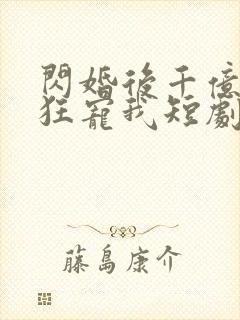 閃婚後千億
狂寵我短劇
藤島康介